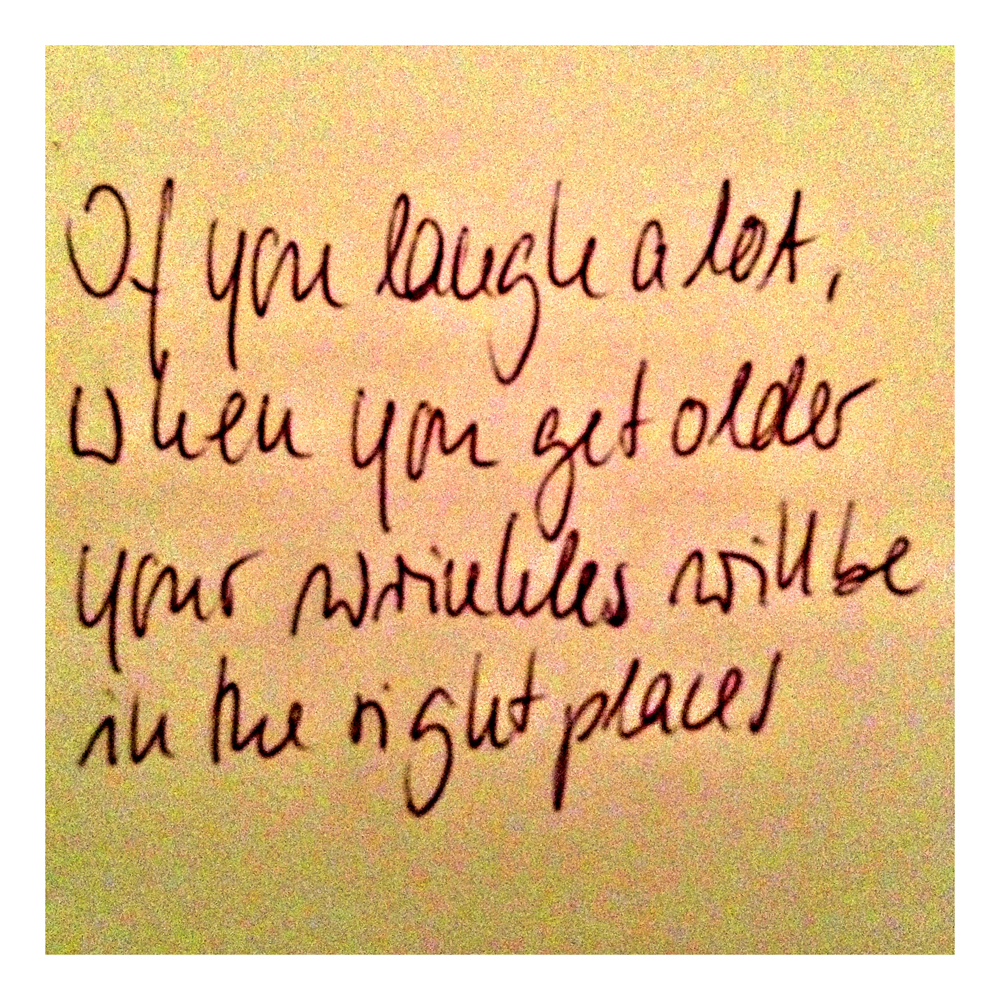 If you laugh a lot,
when you get older
your wrinkles will be
in the right places